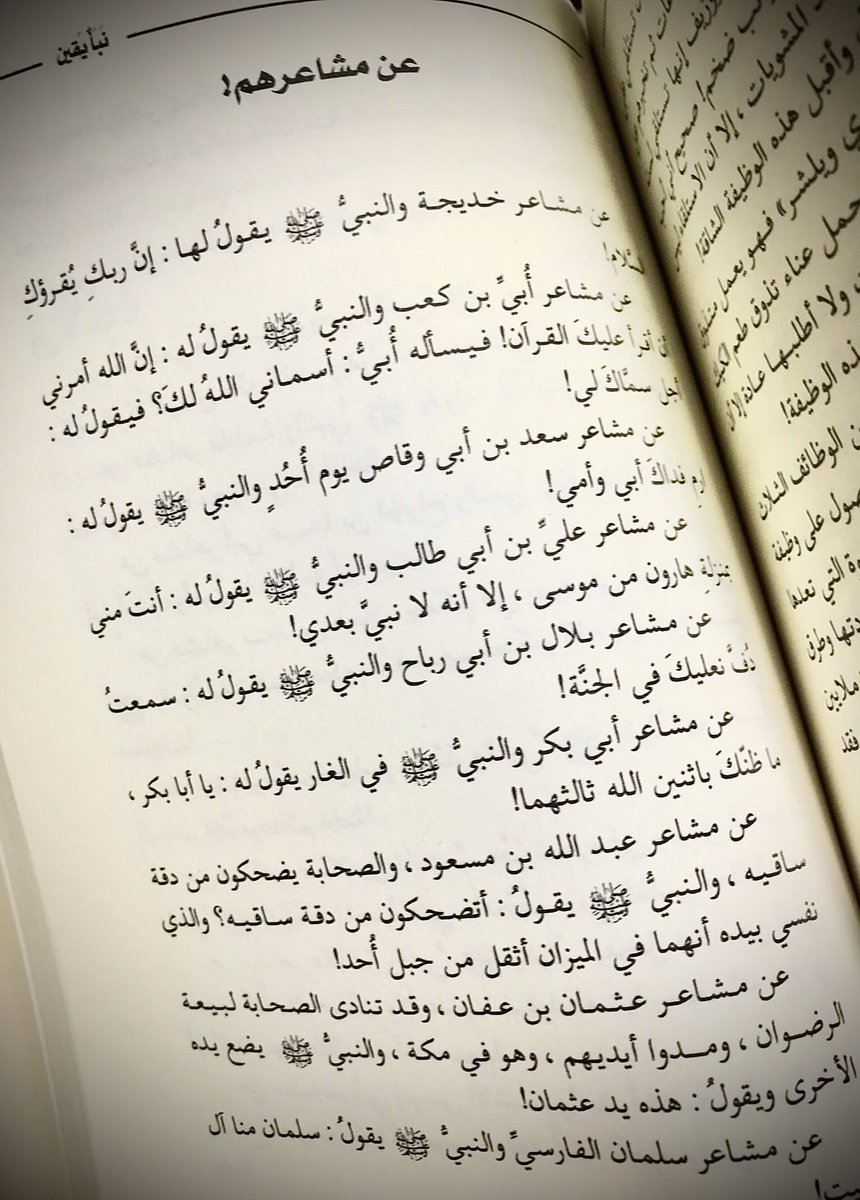 نبأ يقين
عن مشاعرهم!
عن مشاعر خديجة والنبيُّ ﷺ يقولُ لها : إنَّ ربكِ يُقرؤكِ
السلام!
عن مشاعر أُبيِّ بن كعب والنبيُّ ﷺ يقولُ له : إنَّ الله أمرني
أن أقرأ عليكَ القرآن! فيسأله أُبيُّ : أسماني اللهُ لكَ؟ فيقولُ له :
أجل سمَّاكَ لي!
عن مشاعر سعد بن أبي وقاص يوم أُحُدٍ والنبيُّ ﷺ يقولُ له :
ارمِ فداكَ أبي وأمي!
عن مشاعر عليِّ بن أبي طالب والنبيُّ ﷺ يقولُ له : أنتَ مني
بمنزلةِ هارون من موسى ، إلا أنه لا نبيَّ بعدي!
عن مشاعر بلال بن أبي رباح والنبيُّ ﷺ يقولُ له : سمعتُ
دُفَّ نعليكَ في الجنَّة!
عن مشاعر أبي بكر والنبيُّ ﷺ في الغار يقولُ له : يا أبا بكر ،
ما ظنّكَ باثنين الله ثالثهما!
عن مشاعر عبد الله بن مسعود ، والصحابة يضحكون من دقة
ساقيه ، والنبيُّ ﷺ يقولُ : أتضحكون من دقة ساقيه؟ والذي
نفسي بيده أنهما في الميزان أثقل من جبل أُحد!
عن مشاعر عثمان بن عفان ، وقد تنادى الصحابة لبيعة
الرضوان ، ومدوا أيديهم ، وهو في مكة ، والنبيُّ ﷺ يضع يده
الأخرى ويقولُ : هذه يد عثمان!
عن مشاعر سلمان الفارسيِّ والنبيُّ ﷺ يقولُ : سلمان منا آل
ضخم! صحيح
المشويات ، إلا أن
وأقبل هذه الوظيفة الشاقة!
ويلشر» فهو يعمل
حمل عناء تذوق طعم
ولا أطلبها عادة إلا
هذه الوظيفة!
الوظائف الثلاث
على وظيفة
التي تعدها
وطرق
ملايين
فقد